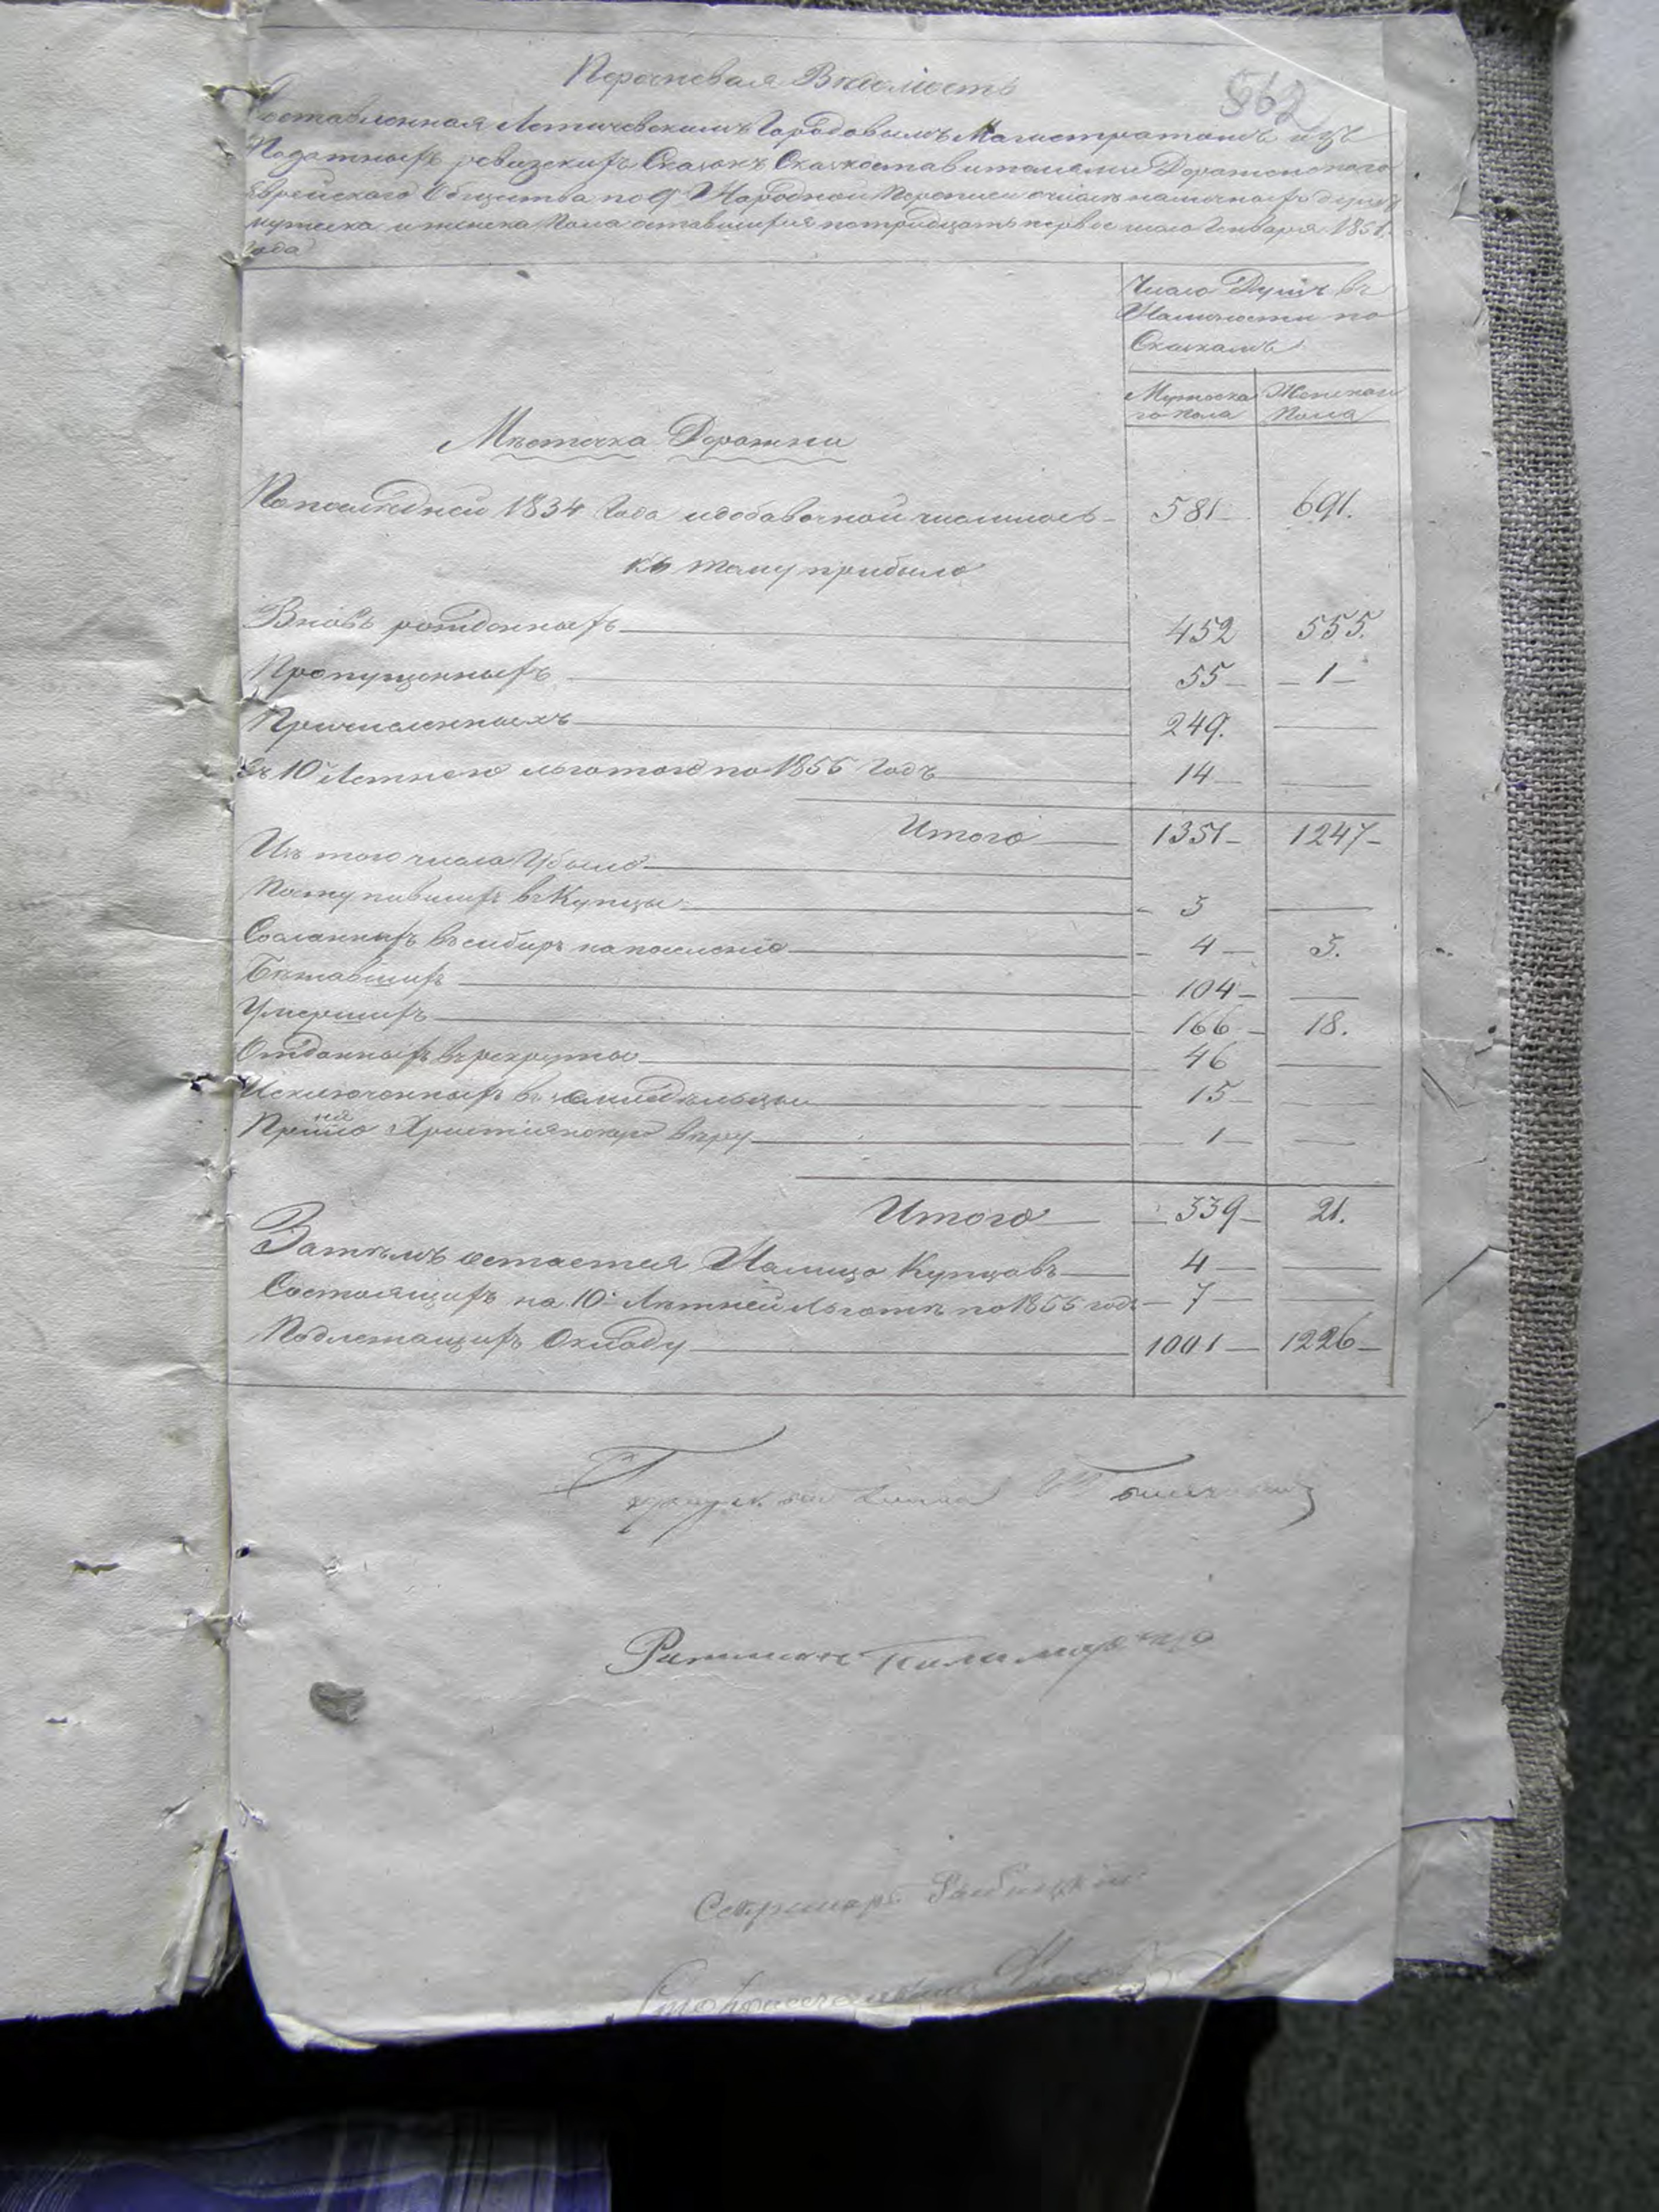 Перечневая Вѣдомость
562
Составленная Летичевскимъ Городовымъ Магистратомъ изъ
Податныхъ ревизскихъ Сказокъ Сказкоставителями Деражнянского
Еврейского Общества по 9й Народной Переписи о числѣ наличныхъ душъ
мужеска и женска Пола оставшихся по тридцать первое число Генваря 1851.
года
Число Душъ въ
Наличности по
Сказкамъ
Мужеска
го Пола
Женскаго
Пола
Мѣстечка Деражни
По последней 1834 Года и добавочной числилось 581 691.
къ тому прибыло
Вновь рожденныхъ 452 555.
Пропущенныхъ 55 1
Причисленныхъ 249.
Съ 10 Летнею льготою по 1856 Годъ 14
Итого 1351 1247
Изъ того числа Убыло
Поступившихъ въ Купцы 3
Сосланныхъ въ сибирь на поселеніе 4 3.
Бежавшихъ 104
Умершихъ 166 18.
Отданныхъ въ рекруты 46
Исключенныхъ въ земледельцы 15
Христіянскую вѣру 1
Итого 339 21.
Затѣмъ остается Налицо Купцовъ 4
Состоящихъ на 10 Лѣтней Льготѣ по 1856 годъ 7
Подлежащихъ Окладу 1001 1226
Ратманъ
Секретарь